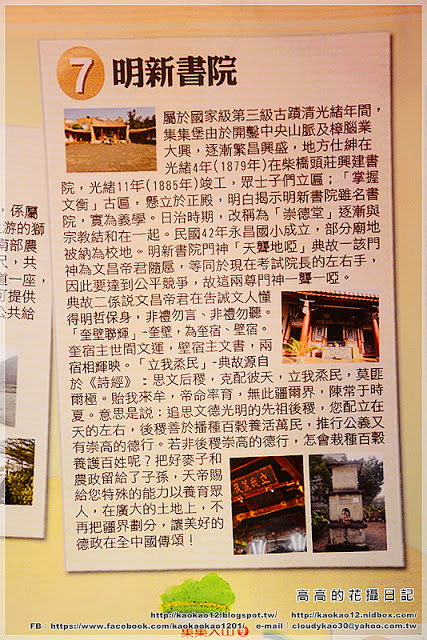 7 明新書院
屬於國家級第三級古蹟清光緒年間，
集集堡由於開鑿中央山脈及樟腦業
大興，逐漸繁昌興盛，地方仕紳在
光緒4年(1879年)在柴橋頭莊興建書
院，光緒11年(1885年)竣工，眾士子們立匾；「掌握
文衡」古匾，懸立於正殿，明白揭示明新書院雖名書
院，實為義學。日治時期，改稱為「崇德堂」逐漸與
宗教結和在一起。民國42年永昌國小成立，部分廟地
被納為校地。明新書院門神「天聾地啞」典故一該門
神為文昌帝君隨扈，等同於現在考試院長的左右手，
因此要達到公平競爭，故這兩尊門神一聾一啞。
典故二係説文昌帝君在告誡文人懂
得明哲保身，非禮勿言、非禮勿聽。
「奎壁聯輝」-奎壁，為奎宿、壁宿。
奎宿主世間文運，壁宿主文書，兩
宿相輝映。「立我烝民」-典故源自
於《詩經》：思文后稷，克配彼天，立我烝民，莫匪
爾極。貽我來牟，帝命率育，無此疆爾界，陳常于時
夏。意思是説：追思文德光明的先祖後稷，您配立在
天的左右，後稷善於播種百穀養活萬民，推行公義又
有崇高的德行。若非後稷崇高的德行，怎會栽種百穀
養護百姓呢？把好麥子和
農政留給了子孫，天帝賜
給您特殊的能力以養育眾
人，在廣大的土地上，不
再把疆界劃分，讓美好的
德政在全中國傳頌！
，係屬
上游的獅
南部農
尺，共
道一座，
可提供
公共給
集集大山
高高的花攝日記
http://kaokao12.blogspot.tw/ http://kaokao12.nidbox.com/
FB：https://www.facebook.com/kaokao1201/ e-mail：cloudykao30@yahoo.com.tw